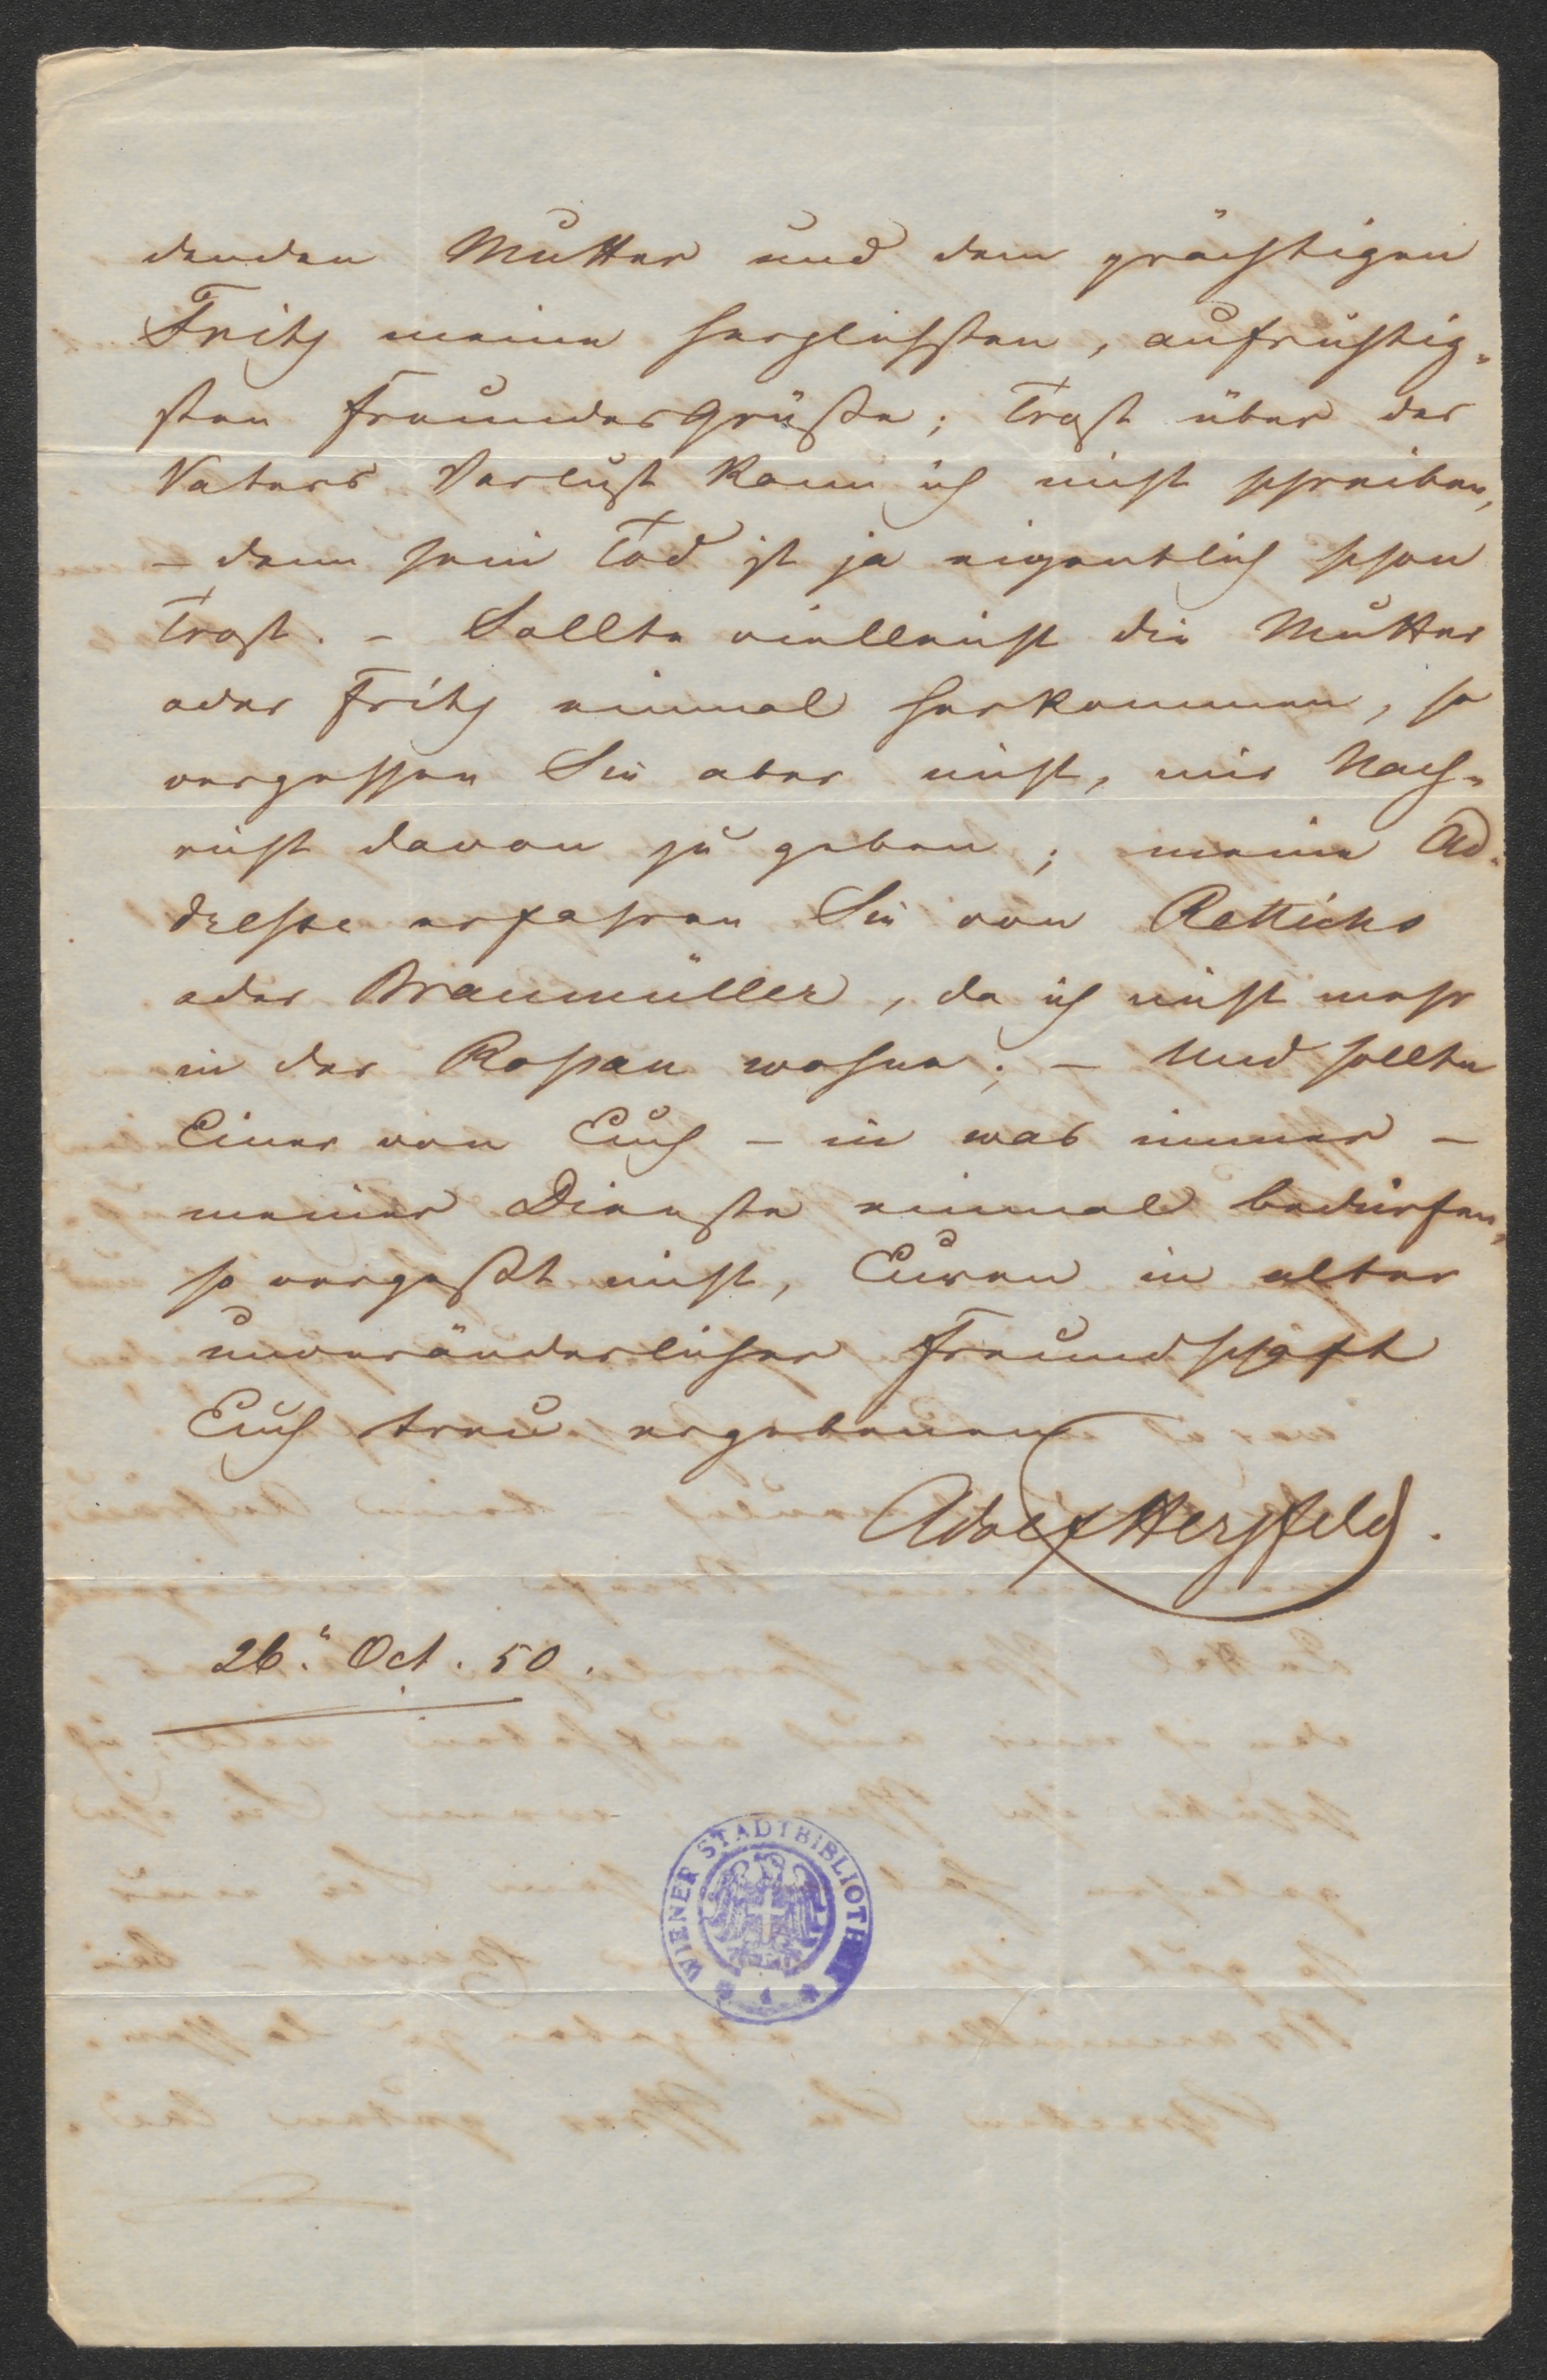 denden Mutter und dem prächtigen
Fritz meine herzlichsten, aufrichtig=
sten Freundesgrüße; Trost über des
Vaters Verlust kann ich nicht schreiben,
– denn sein Tod ist ja eigentlich schon
Trost. – Sollte vielleicht die Mutter
oder Fritz einmal herkommen, so
vergessen Sie aber nicht, mir Nach=
richt davon zu geben; meine Ad=
dresse erfahren Sie von Rettichs
oder Braumüller, da ich nicht mehr
in der Rossau wohne; – Und sollte
Einer von Euch – in was immer –
meiner Dienste einmal bedürfen,
so vergeßt nicht, Euren in alter
unveränderlicher Freundschaft
Euch treu ergebenen
Adolf Herzfeld.
26. Oct. 50.
WIENER STADTBIBLIOTHEK